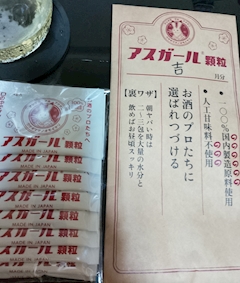 アスガール 顆粒
吉
一〇〇%国内製造原料使用
人工甘味料不使用
お酒のプロたちに
選ばれつづける
【裏ワザ】
朝ヤバい時は
二〜三包を大量の水分と
飲めばお昼頃スッキリ
アスガール 顆粒
MADE IN JAPAN
アスガール 顆粒
MADE IN JAPAN
アスガール 顆粒
MADE IN JAPAN
アスガール 顆粒
MADE IN JAPAN
アスガール 顆粒
MADE IN JAPAN
アスガール 顆粒
MADE IN JAPAN
アスガール 顆粒